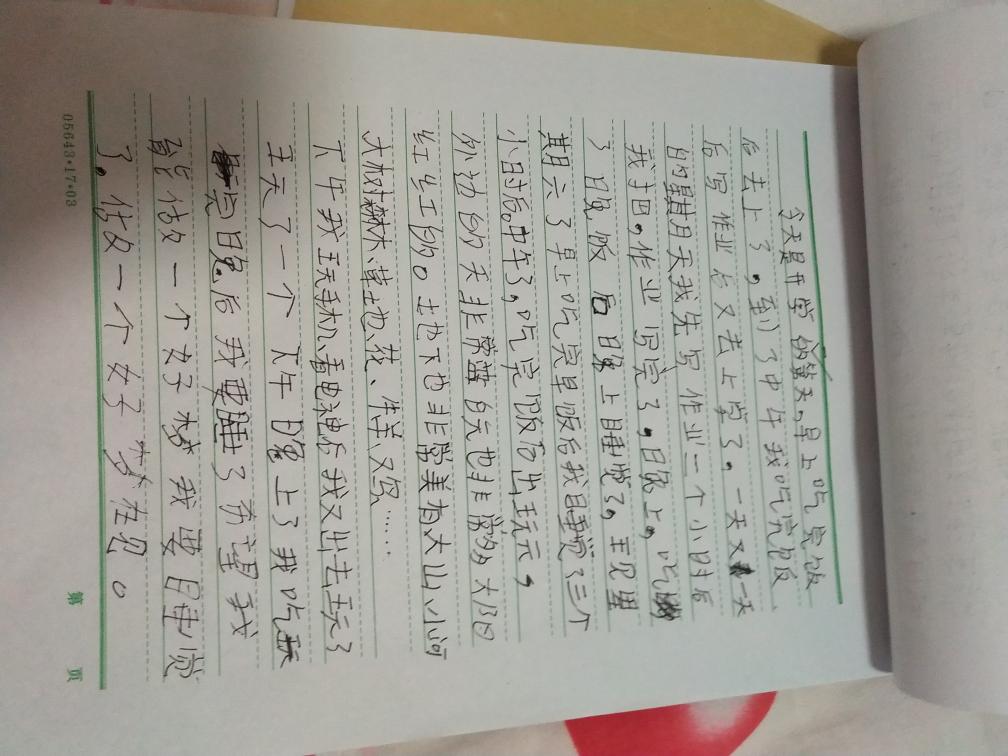 今天是开学的第一天,早上吃完饭
后去上了,到了中午我吃完饭、
后写作业后又去上学了。一天又一天
的星期天我先写作业二个小时后
我扫田,作业写完了,晚上,吃
了晚饭后晚上睡觉了,王见里
期六了早上吃完早饭后我睡觉了三个
小时后。中午了,吃完饭后出玩,
外边的天非常蓝白云也非常多太阳
红红的。土也下也非常美有大山、小河
大树森木、草地、花、牛羊又......
下午我玩手机、看电视后我又出去玩了
玩了一个下午晚上了我吃
完晚后我要睡了希望我
能做一个好子梦我要睡觉
了,做一个好子梦在里。
05643·17·03
第 页